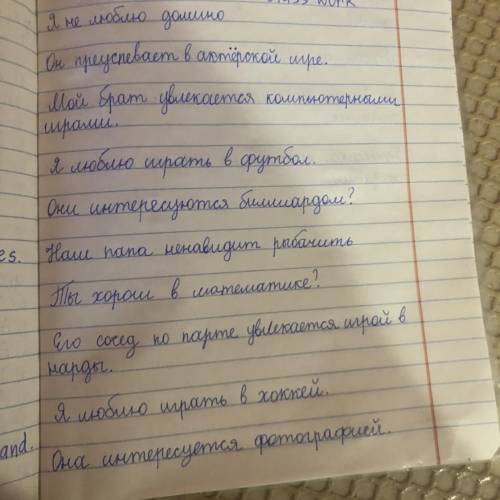 Я не люблю домино
Он преуспевает в актёрской игре.
Мой брат увлекается компьютерными
играми.
Я люблю играть в футбол.
Они интересуются биллиардом?
es. Наш папа ненавидит рыбачить
Ты хорош в математике?
Его сосед по парте увлекается игрой в
нарды.
Я люблю играть в хоккей.
and. Она интересуется фотографией.